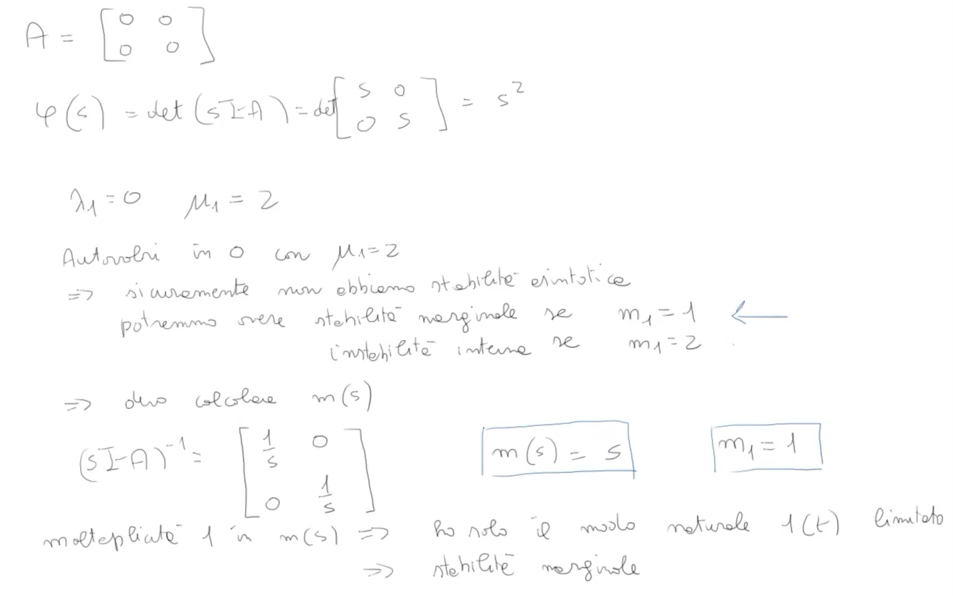 A = [0 0
0 0]
φ(s) = det(sI-A) = det[s 0
0 s] = s²
λ1=0 μ1=2
Autovalori in 0 con μ1=2
=> sicuramente non abbiamo stabilità asintotica
potremmo avere stabilità marginale se m1=1 ←
instabilità interna se m1=2
=> devo calcolare m(s)
(sI-A)⁻¹= [1/s 0
0 1/s] m(s) = s m1=1
molteplicità 1 in m(s) => ho solo il modo naturale 1(t) limitato
=> stabilità marginale